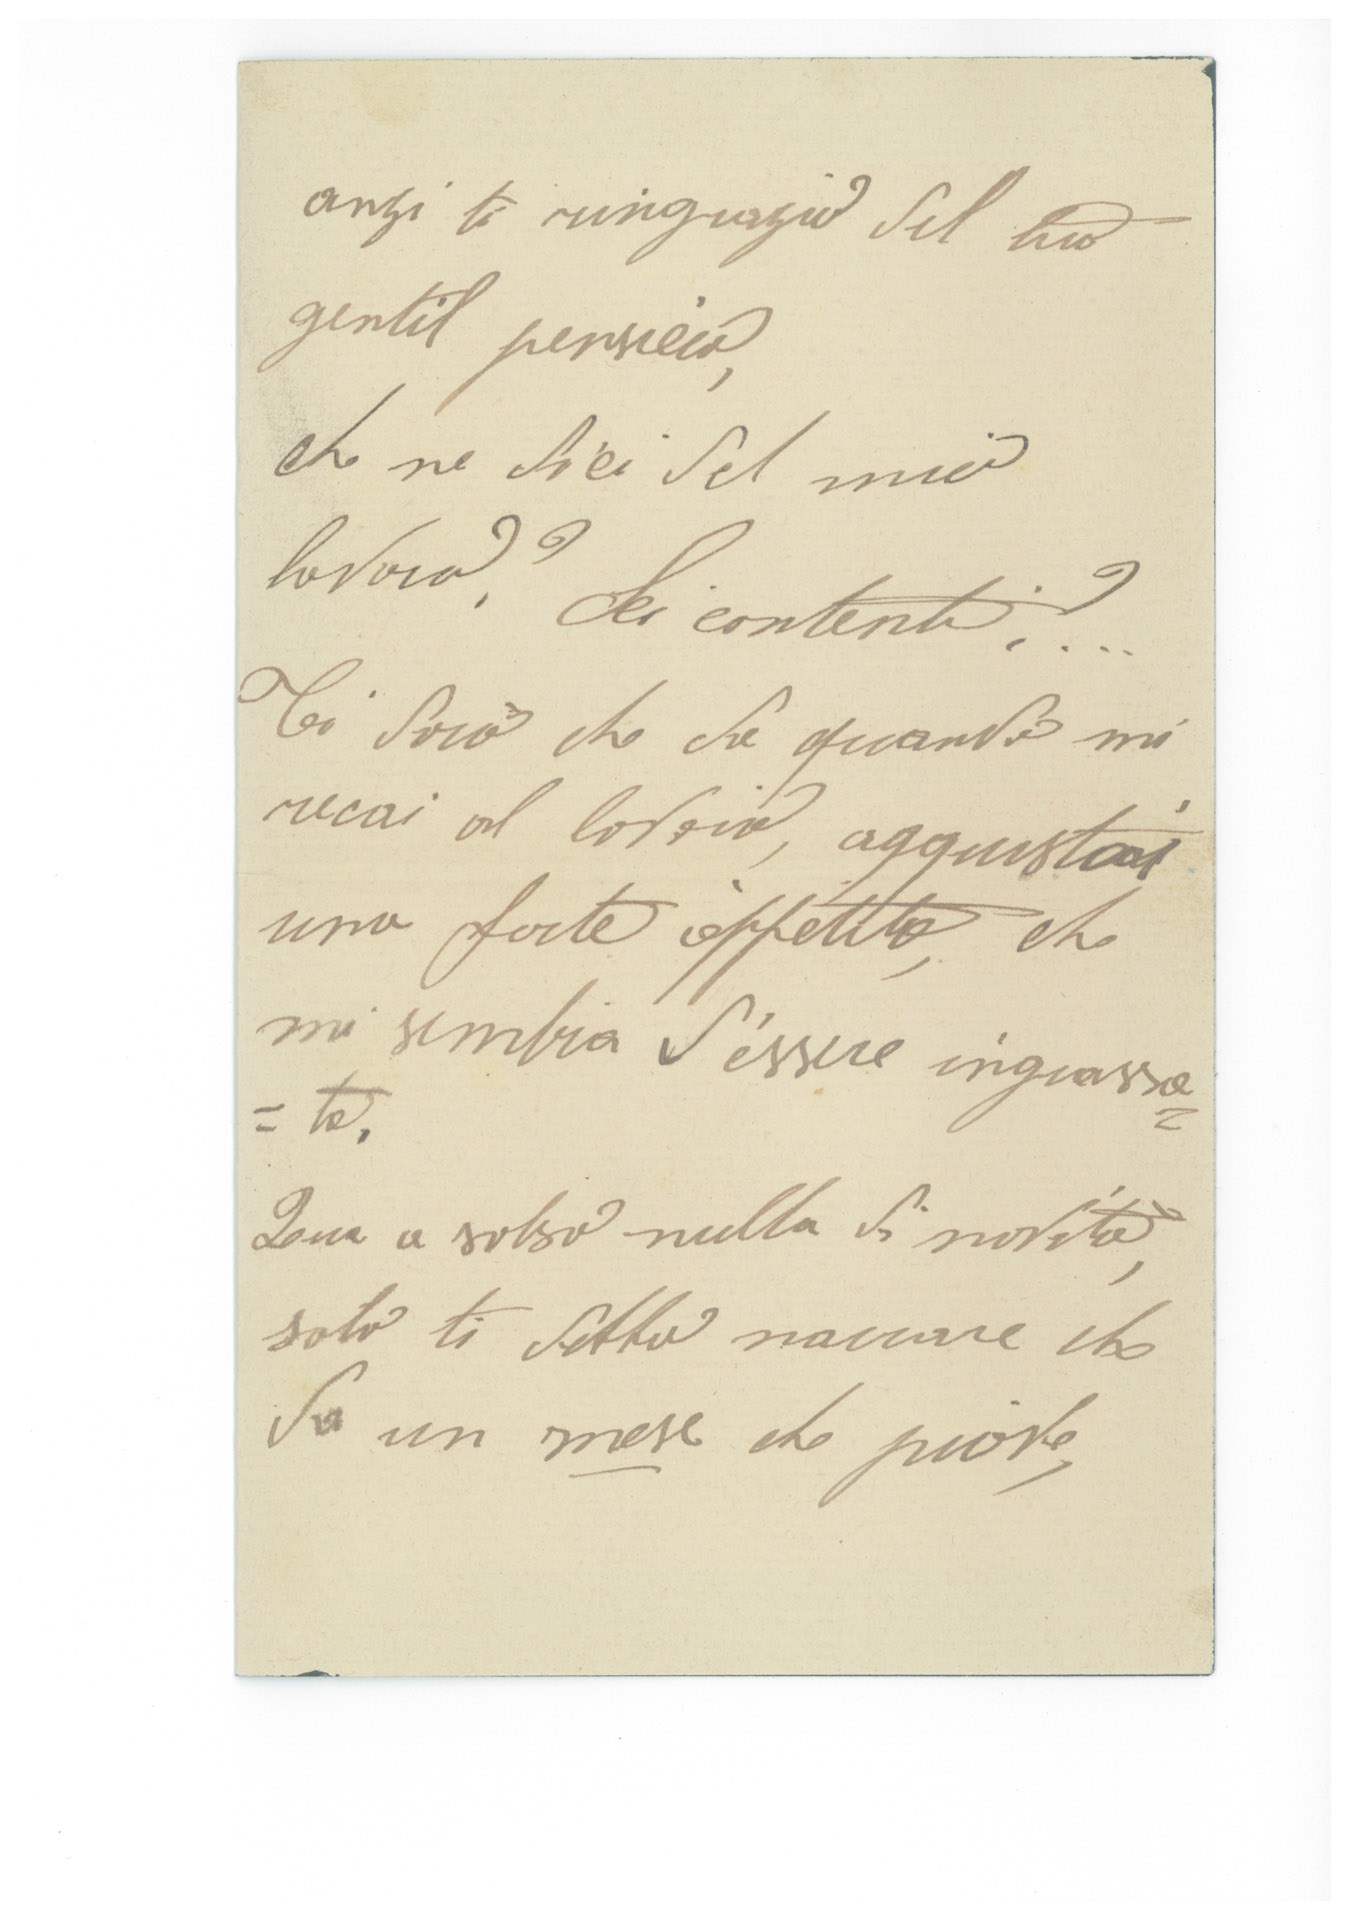 anzi ti ringrazio del tuo
gentil pensiero,
che ne dici del mio
lavoro,? Sei contento?....
Ti dirò che da quando mi
recai al lavoro, acquistai
una forte appetito, che
mi sembra d'essere ingrassa=
=ta.
Qua a solso nulla di novità,
solo ti debbo narrare che
da un mese che piove,